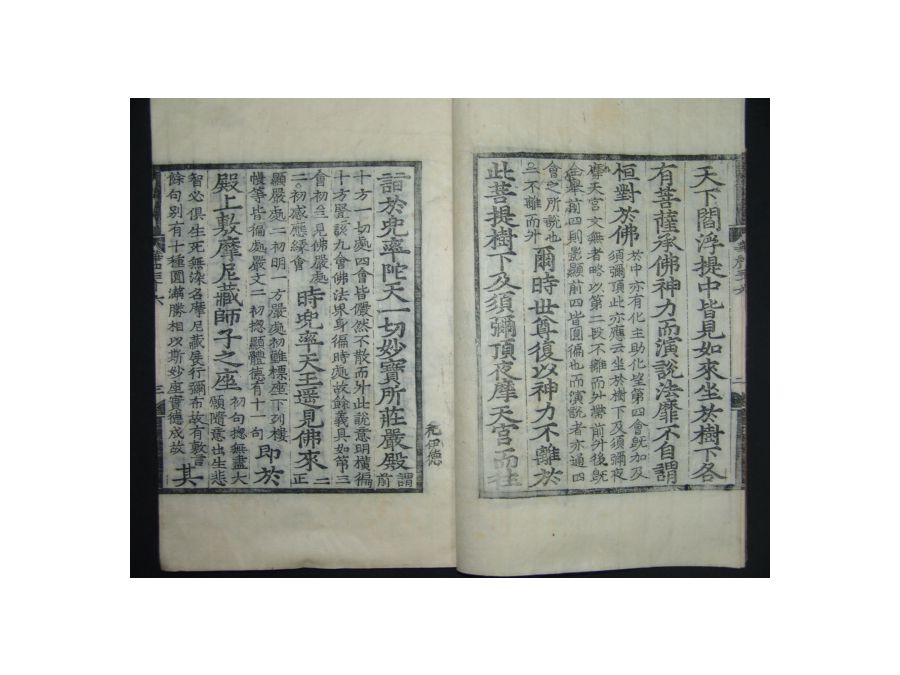 天下閻浮提中皆見如來坐於樹下各
有菩薩承佛神力而演說法靡不自謂
恒對於佛
於中亦有化主助化望第四會既加及
須彌頂此亦應云坐於樹下及須彌夜
摩天宮文無者略以第二段不離而外帶前升後既
合舉前四則影顯前四皆圓徧也而演說者亦通四
會之所說也
二不離而升
爾時世尊復以神力不離於
此菩提樹下及須彌頂夜摩天宮而往
詣於兜率陀天一切妙寶所莊嚴殿
謂
前
十方一切處四會皆儼然不散而升此說意明橫徧
十方竪該九會佛法界身徧時處故餘義具如第三
會初
見佛嚴處
二初感應緣會
時兜率天王遥見佛來
二
正
顯嚴處二初明一方嚴處初雖標座下列樓
幰等皆徧處嚴文二初揔顯體德有十一句
即於
殿上敷摩尼藏師子之座
初句揔無盡大
願隨意出生悲
智必俱生死無染名摩尼藏
行彌布故有敷言
餘句別有十種圓滿勝相以斯妙座實德成故
其
三
二